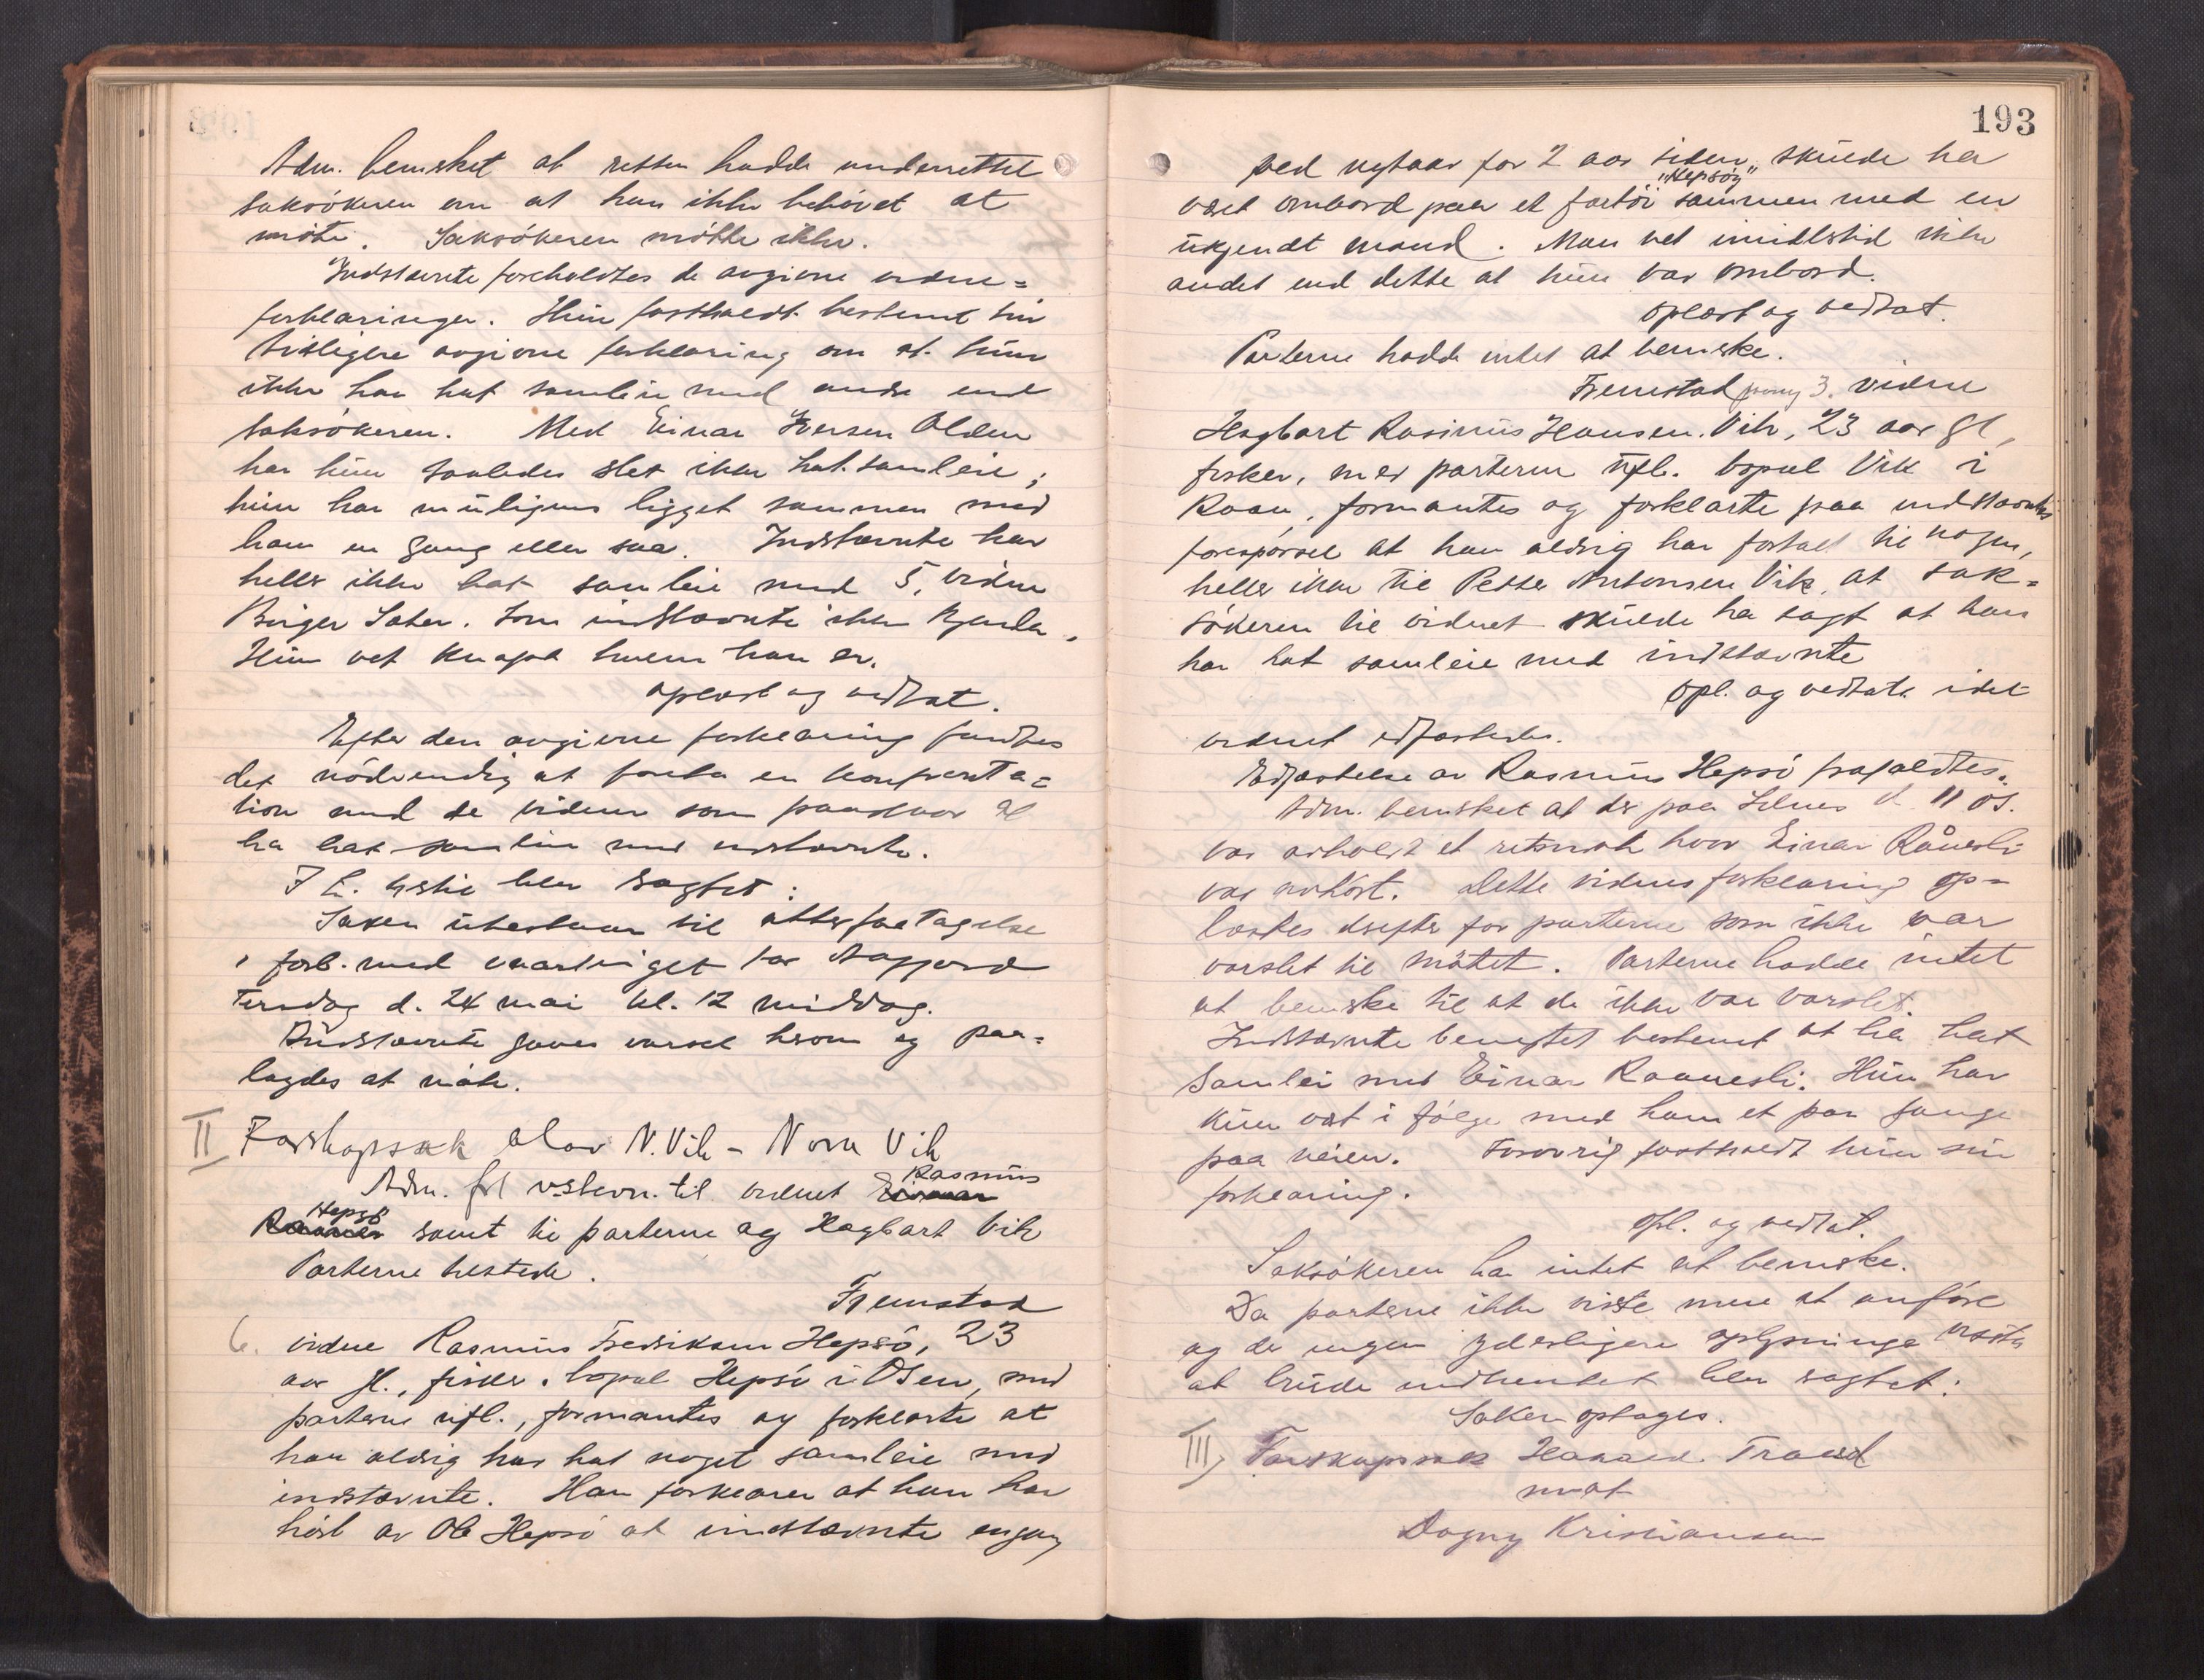 Adm. bemerket at retten hadde underrettet
saksökeren om at han ikke behövet at
möte. Saksökeren mötte ikke.
Indstevnte foreholdtes de avgivne vidne=
forklaringer. Hun fastholdt bestemt sin
tidligere avgivne forklaring om at hun
ikke har hat samleie med andre end
saksökeren. Med Einar Iversen Olden
har hun saaledes slet ikke hat samleie;
hun har muligens ligget sammen med
ham en gang eller saa. Indstevnte har
heller ikke hat samleie med 5. vidne
Birger Sater. som indstevnte ikke kjender.
Hun vet knapt hvem han er.
oplæst og vedtat.
Efter den avgivne forklaring fandtes
det nödvendig at foreta en konfronta=
tion med de vidner som paastaar at
ha hat samleie med indstevnte.
I h. hertil blev sagtet:
Saken utestaar til atterforetagelse
i forb. med vaartinget for Stoksund
Tirsdag d. 24 mai kl. 12 middag.
Indstevnte gaves varsel herom og paa-
lagdes at möte.
II Farskapssak Olav N. Vik - Nora Vik
Adm. frl v.stevn. til vidnet Rasmus
Hepsö samt til parterne og Hagbart Vik
Parterne tilstede.
Fremstod
6. vidne Rasmus Fredriksen Hepsö, 23
aar gl., fisker. bopæl Hepsö i Osen, med
parterne ufl., formantes og forklarte at
han aldrig har hat noget samleie med
indstevnte. Han forklarer at han har
hört av Ole Hepsö at indstevnte engang
193
ved nytaar for 2 aar siden, skulde ha
"Hepsöy"
været ombord paa et fartöi sammen med en
ukjendt mand. Man vet imidlertid ikke
andet end dette at hun var ombord.
oplæst og vedtat.
Parterne hadde intet at bemerke.
Fremstod paany 3. vidne
Hagbart Rasmus Hansen Vik, 23 aar gl,
fisker, med parterne ufl. bopæl Vik i
Roan, formantes og forklarte paa indstevntes
forespörsel at han aldrig har fortalt til nogen,
heller ikke til Petter Antonsen Vik, at sak=
sökeren til vidnet skulde ha sagt at han
har hat samleie med indstevnte
Opl. og vedtat idet
vidnet edfæstedes.
Edfæstelse av Rasmus Hepsö frafaldtes.
Adm. bemerket at der paa d. 11 ds.
var avholdt et retsmöte hvor Einar Rånesli
var avhört. Dette vidnes forklaring op=
læstes derefter for parterne som ikke var
varslet til mötet. Parterne hadde intet
at bemerke til at de ikke var varslet.
Indstevnte benegtet bestemt at ha hat
samleie med Einar Raanesli. Hun har
kun vært i fölge med ham et par gange
paa veien. Forövrig fastholdt hun sin
forklaring.
Opl. og vedtat.
Saksökeren har intet at bemerke.
Da parterne ikke visste mere at anföre
og der ingen yderligere oplysninger
at burde indhentet blev sagtet:
Saken optages.
III, Farskapssak Harald Trand
mot
Dagny Kristiansen